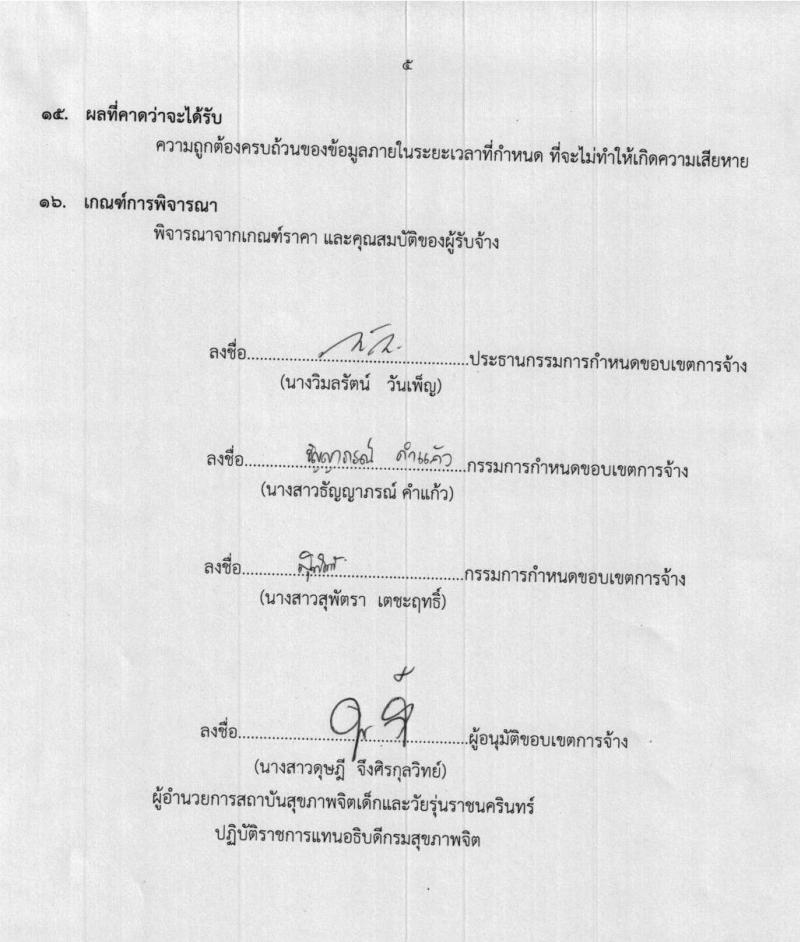 ๕
๑๕. ผลที่คาดว่าจะได้รับ
ความถูกต้องครบถ้วนของข้อมูลภายในระยะเวลาที่กำหนด ที่จะไม่ทำให้เกิดความเสียหาย
๑๖. เกณฑ์การพิจารณา
พิจารณาจากเกณฑ์ราคา และคุณสมบัติของผู้รับจ้าง
ลงชื่อ..................................................ประธานกรรมการกำหนดขอบเขตการจ้าง
(นางวิมลรัตน์ วันเพ็ญ)
ลงชื่อ.....ธัญญาภรณ์ คำแก้ว.....กรรมการกำหนดขอบเขตการจ้าง
(นางสาวธัญญาภรณ์ คำแก้ว)
ลงชื่อ..................................................กรรมการกำหนดขอบเขตการจ้าง
(นางสาวสุพัตรา เตชะฤทธิ์)
ลงชื่อ..................................................ผู้อนุมัติขอบเขตการจ้าง
(นางสาวดุษฎี จึงศิรกุลวิทย์)
ผู้อำนวยการสถาบันสุขภาพจิตเด็กและวัยรุ่นราชนครินทร์
ปฏิบัติราชการแทนอธิบดีกรมสุขภาพจิต